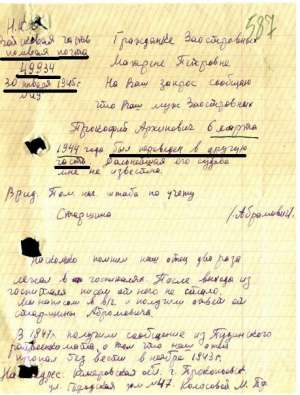 587
Н.К.О.
Войсковая часть Гражданке Заостровных
полевая почта Матрене Петровне
49934
30 января 1945 г. На Ваш запрос сообщаю
№
что Ваш муж Заостровных
Прокофий Архипович 6 марта
1944 года был переведен в другую
часть дальнейшая его судьба
мне не известна.
Врид. Пом. нач. штаба по учету
Старшина /Абрамович/
Насколько помним наш отец два раза
лежал в госпиталях. После выхода из
госпиталя писем от него не стало.
Мы написали в в/ч и получили ответ от
старшины Абрамовича.
В 1947 г. получили сообщение из
райвоенкомата, о том что наш отец
пропал без вести в ноябре 1943 г.
адрес: Кемеровская обл. г. Прокопьевск
ул. Городская дом №47 Колосовой М. П.